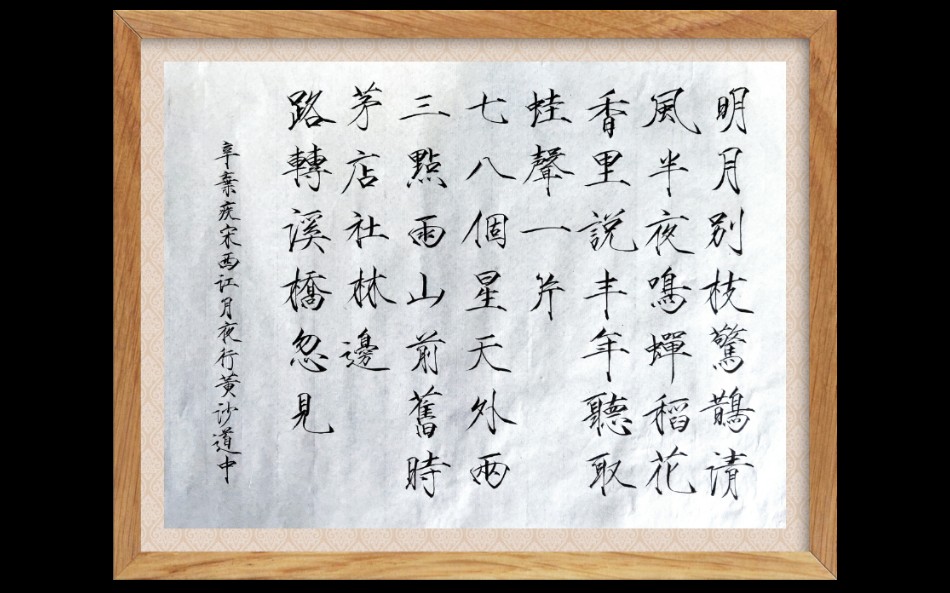 明月別枝驚鵲请
風半夜鳴蟬稻花
香里説丰年聽取
蛙聲一片
七八個星天外兩
三點雨山前舊時
茅店社林邊
路轉溪橋忽見
辛棄疾宋西江月夜行黄沙道中